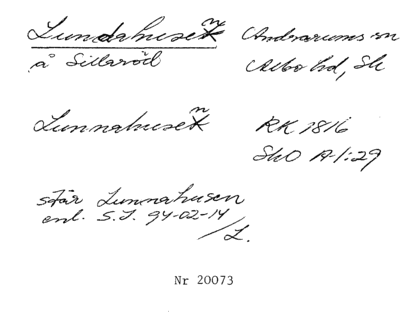 Lundahuset n Andrarums sn
å Sillaröd Albo hd, Sk
Lunnahuset n RK 1816
SkO A-1:29
står Lunnahusen
enl. S.J. 94-02-14
/L.
Nr 20073